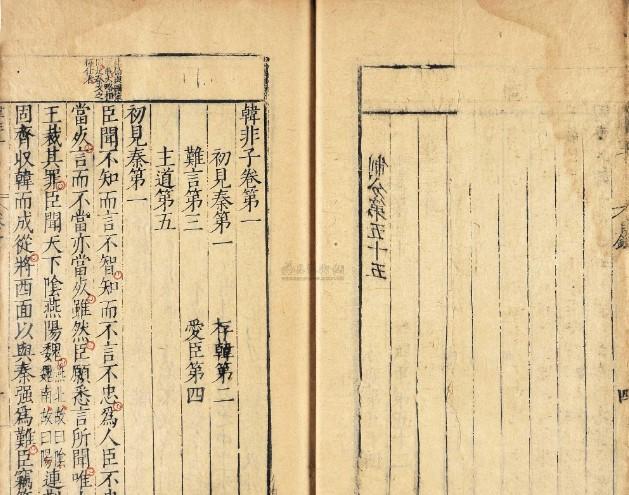 制分第五十五
四
韓非子卷第一
初見秦第一
存韓第二
難言第三
愛臣第四
主道第五
初見秦第一
臣聞不知而言不智知而不言不忠爲人臣不忠
當死言而不當亦當死雖然臣願悉言所聞唯
王裁其罪臣聞天下陰燕陽魏
燕北故曰陰
魏南故曰陽
連荆
固齊収韓而成從將西面以與秦强爲難臣竊